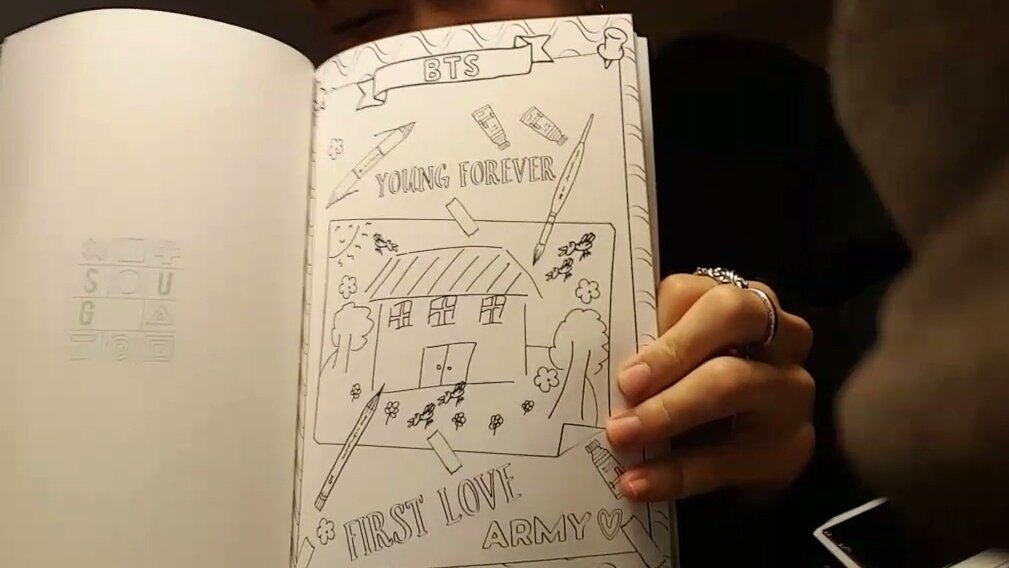 S U
G
BTS
YOUNG FOREVER
FIRST LOVE
ARMY